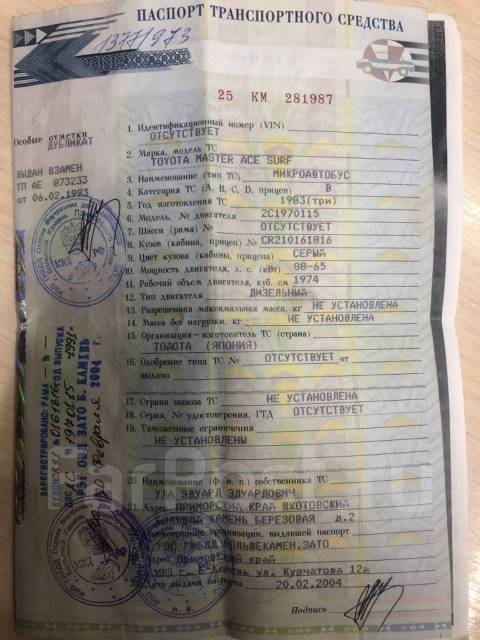 ПАСПОРТ ТРАНСПОРТНОГО СРЕДСТВА
1377/973
25 КМ 281987
Особые отметки
ДУБЛИКАТ
ВЫДАН ВЗАМЕН
ТП АЕ 873233
от 06.02.1993
1. Идентификационный номер (VIN)
ОТСУТСТВУЕТ
2. Марка, модель ТС
TOYOTA MASTER ACE SURF
3. Наименование (тип ТС) МИКРОАВТОБУС
4. Категория ТС (А, В, С, D, прицеп) В
5. Год изготовления ТС 1983(три)
6. Модель, № двигателя 2C1970115
7. Шасси (рама) № ОТСУТСТВУЕТ
8. Кузов (кабина, прицеп) № CR210161816
9. Цвет кузова (кабины, прицепа) СЕРЫЙ
10. Мощность двигателя, л. с. (кВт) 88-65
11. Рабочий объем двигателя, куб. см 1974
12. Тип двигателя ДИЗЕЛЬНЫЙ
13. Разрешенная максимальная масса, кг НЕ УСТАНОВЛЕНА
14. Масса без нагрузки, кг НЕ УСТАНОВЛЕНА
15. Организация-изготовитель ТС (страна)
ТОЙОТА (ЯПОНИЯ)
16. Одобрение типа ТС № ОТСУТСТВУЕТ от
выдано
17. Страна вывоза ТС НЕ УСТАНОВЛЕНА
18. Серия, № удостоверения, ГТД ОТСУТСТВУЕТ
19. Таможенные ограничения
НЕ УСТАНОВЛЕНЫ
20. Наименование (ф. и. о.) собственника ТС
УЛА ЭДУАРД ЭДУАРДОВИЧ
21. Адрес ПРИМОРСКИЙ КРАЙ ШКОТОВСКИЙ
БОЛЬШОЙ КАМЕНЬ БЕРЕЗОВАЯ д.2
Наименование организации, выдавшей паспорт
РЭО ГИБДД БОЛЬШЕКАМЕН.ЗАТО
Адрес Приморский край
Камень ул. Курчатова 12а
Дата выдачи паспорта 20.02.2004
М. П.
Подпись
ЗАРЕГИСТРИРОВАНО: РАМА
ГОД ВЫПУСКА
ЗАТО Б. КАМЕНЬ
февраля 2004 г.